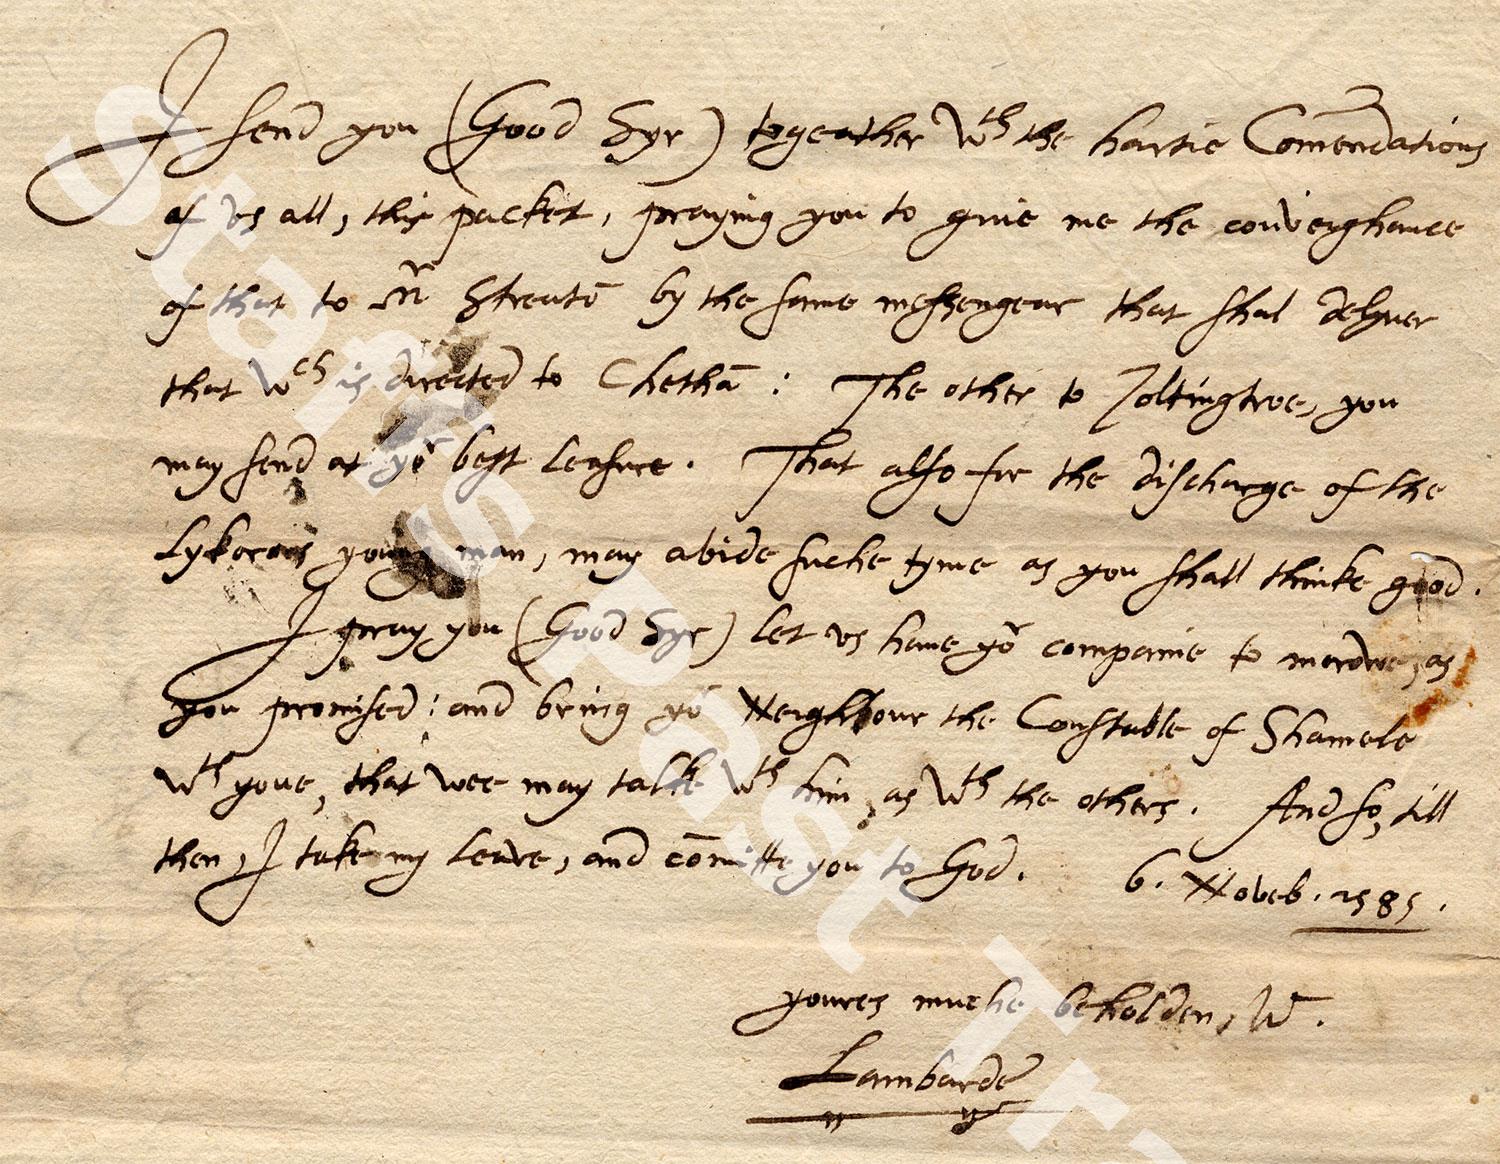 I send you (Good Syr) togeather wth the hartie Comendations
of vs all, this packet, praying you to giue me the conveighance
of that to Mr Streatō by the same messengear that shal delyuer
that wch is directed to Chethā : The other to Toltingtroe, you
may send at yor best leasure. That also for the discharge of the
young man, may abide suche tyme as you shall thinke good.
I pray you (Good Syr) let vs haue yor companie to morowe, as
you promised : and bring yor Neighbour the Constable of Shamele
wth youe, that wee may talke wth him, as wth the others. And so, till
then, I take my leave, and cōmitte you to God. 6. Noveb. 1585.
youres muche beholden, W.
Lambarde
Stan's Past Tr